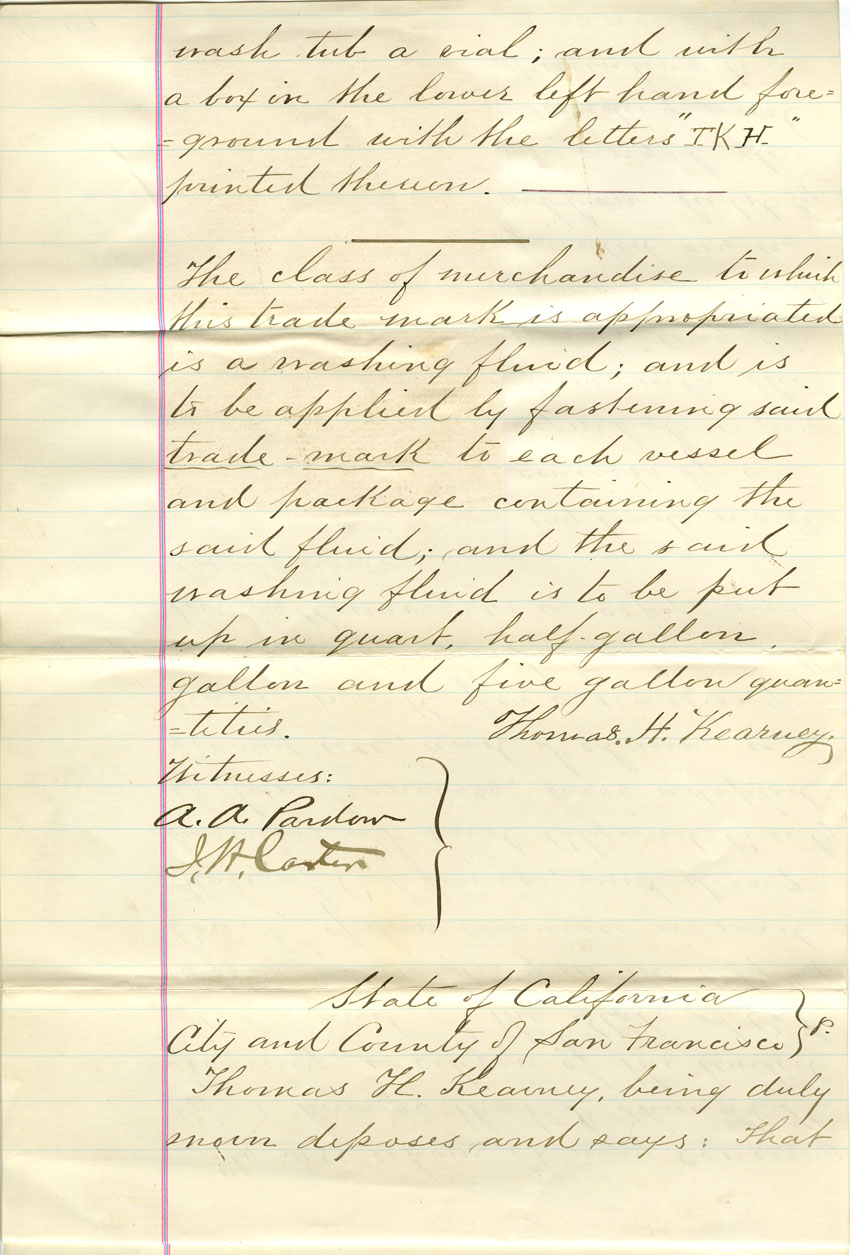 wash tub a vial; and with
a box in the lower left hand fore=
=ground with the letters "TKH."
printed thereon.
The class of merchandise to which
this trade mark is appropriated
is a washing fluid; and is
to be applied by fastening said
trade-mark to each vessel
and package containing the
said fluid; and the said
washing fluid is to be put
up in quart, half-gallon,
gallon and five gallon quan=
=tities. Thomas. H. Kearney,
Witnesses:
A. A. Pardow
J. H. Carter
State of California
City and County of San Francisco
Thomas H. Kearney, being duly
sworn deposes and says: That